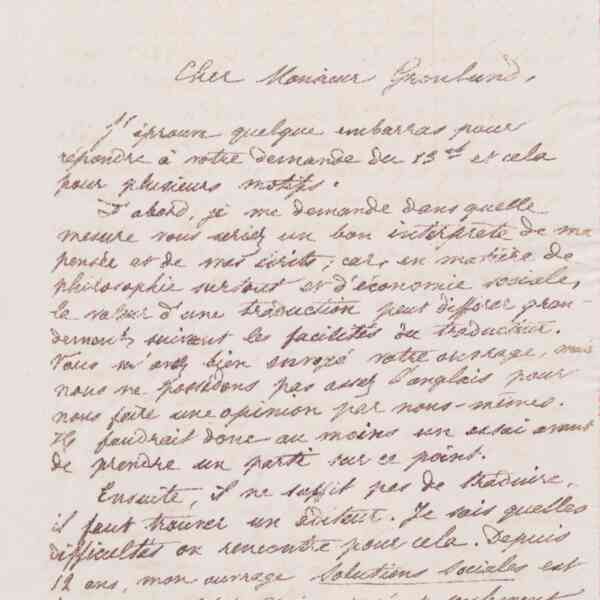 Cher Monsieur Gronlund,
J'éprouve quelque embarras pour
répondre à votre demande du 13 et et cela
pour plusieurs motifs.
D'abord, je me demande dans quelle
mesure vous seriez un bon interprète de ma
pensée et de mes écrits; car, en matière de
philosophie surtout et d'économie sociale,
la valeur d'une traduction peut différer gran-
dement suivant les facilités du traducteur.
Vous m'avez bien envoyé votre ouvrage, mais
nous ne possédons pas assez l'anglais pour
nous faire une opinion par nous-mêmes.
Il faudrait donc au moins un essai avant
de prendre un parti sur ce point.
Ensuite, il ne suffit pas de traduire,
il faut trouver un éditeur. Je sais quelles
difficultés on rencontre pour cela. Depuis
12 ans, mon ouvrage Solutions Sociales est